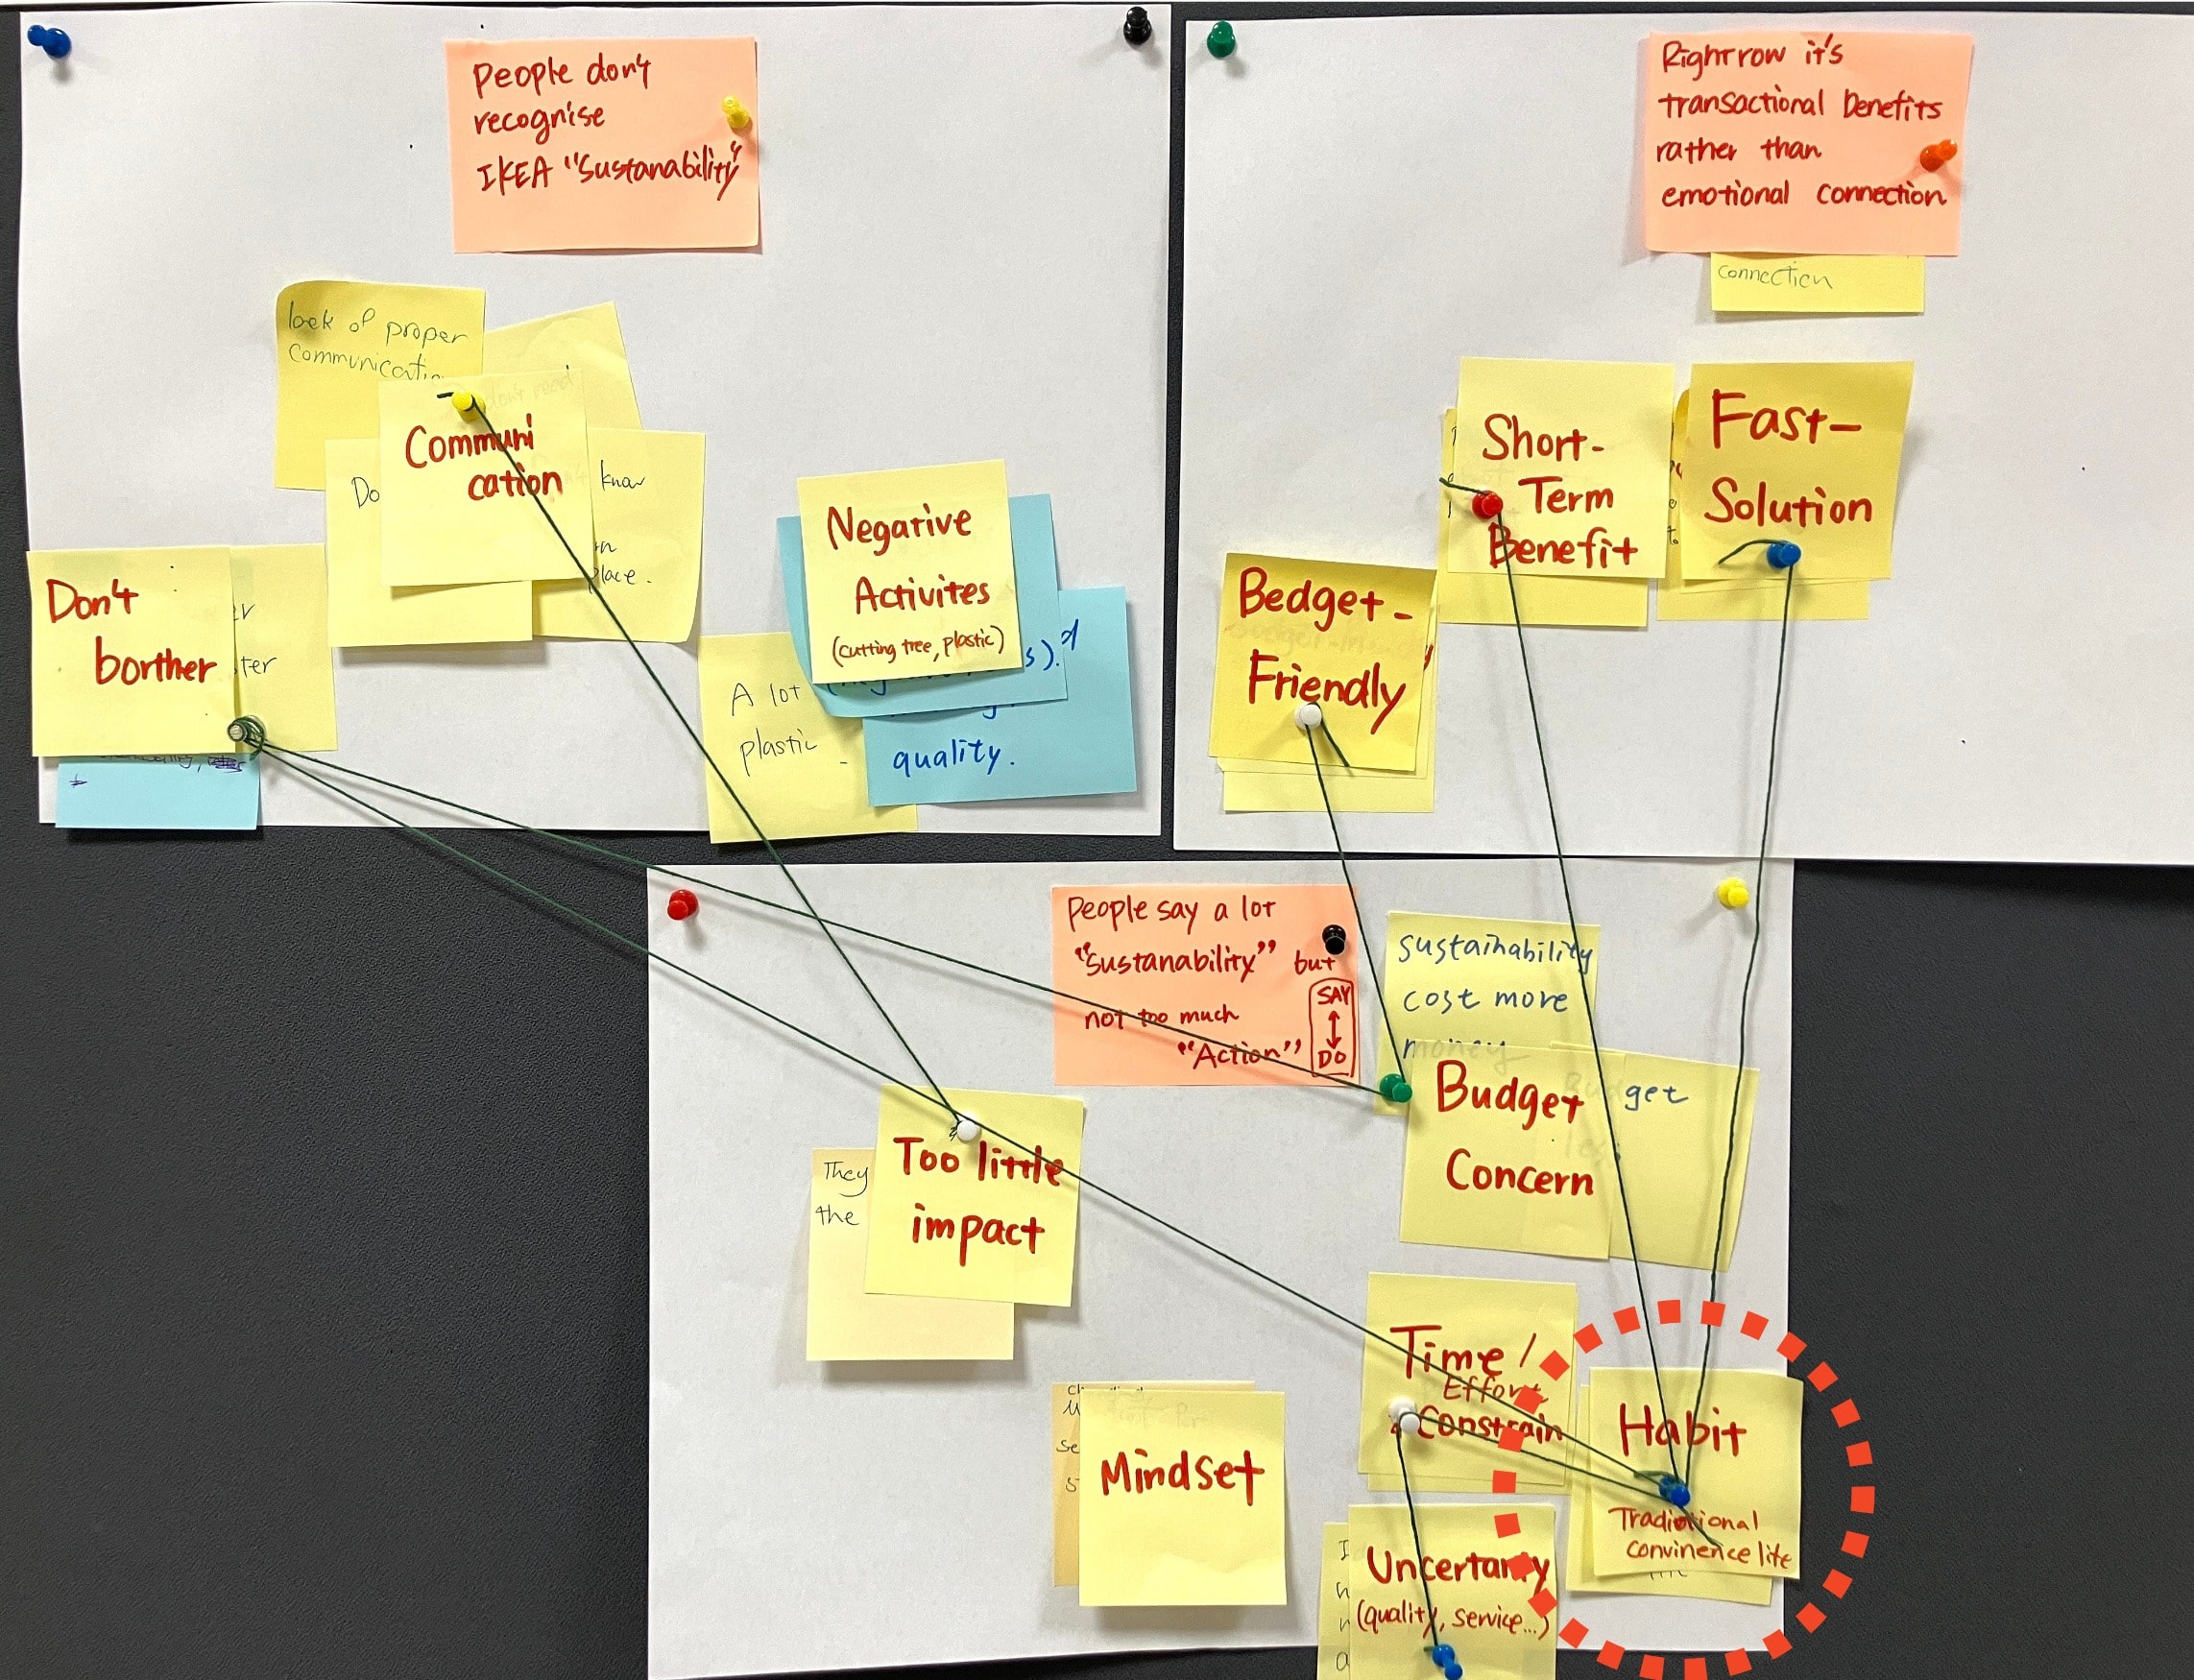 People don't
recognise
IKEA "Sustanability"
lack of proper
Communi
cation
Do
know
place.
Don't
borther
ter
Negative
Activites
(cutting tree, plastic)
s).
A lot
plastic
quality.
Rightrow it's
transactional benefits
rather than
emotional connection
connection
Short-
Term
Benefit
Fast-
Solution
Bedget-
Friendly
People say a lot
"Sustanability" but
not too much
"Action"
SAY
DO
sustainability
cost more
money
Budget
Concern
get
They
the
Too little
impact
Mindset
Time /
Effort
Constrain
Habit
Traditional
convinence life
Uncertanty
(quality, service...)